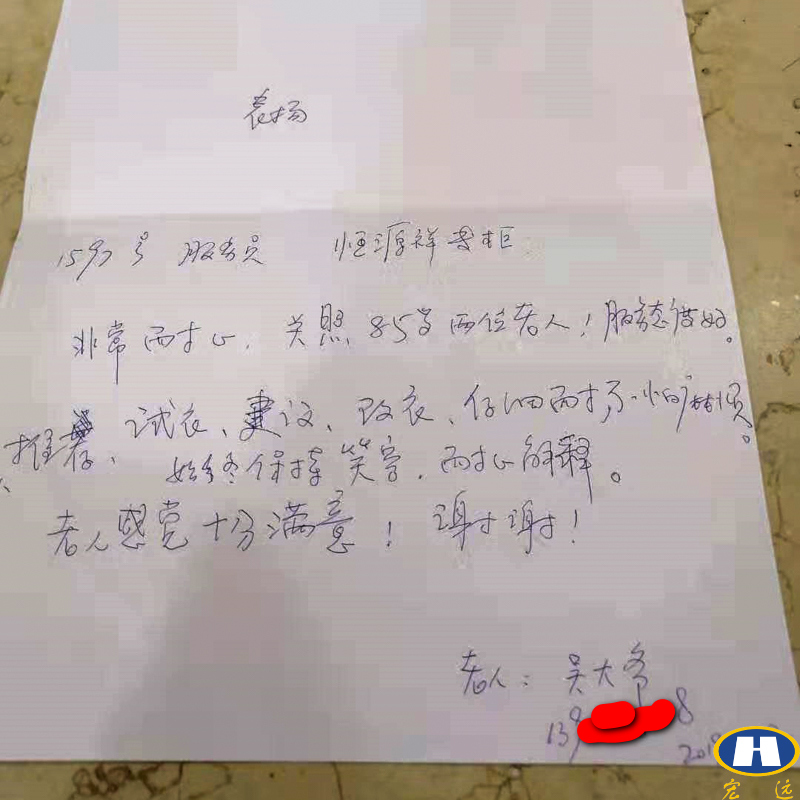 表扬
1597号 服务员 恒源祥专柜
非常耐心、关照85岁两位老人！服务态度好。
推荐、试衣、建议、改衣、仔细耐心，不怕麻烦。
始终保持笑容，耐心解释。
老人感觉十分满意！谢谢！
老人：吴大
139 8
201
H
宏远